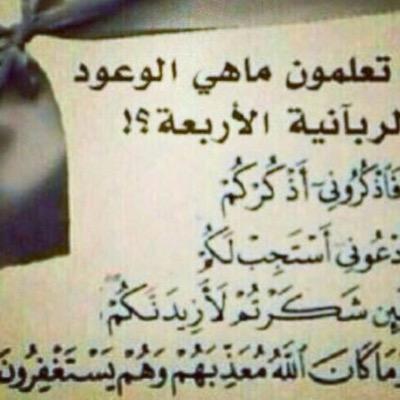 تعلمون ماهي الوعود
لربآنية الأربعة؟!
فَٱذْكُرُونِىٓ أَذْكُرْكُمْ
دْعُونِىٓ أَسْتَجِبْ لَكُمْ
لَئِن شَكَرْتُمْ لَأَزِيدَنَّكُمْ
وَمَا كَانَ ٱللَّهُ مُعَذِّبَهُمْ وَهُمْ يَسْتَغْفِرُونَ